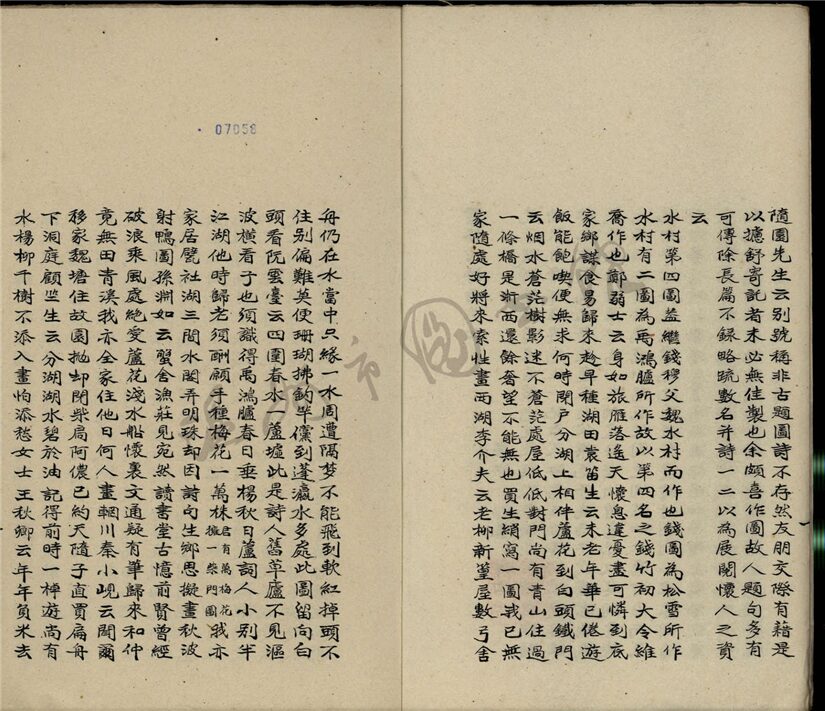 隨園先生云別號稱非古題圖詩不存然友朋交際有藉是
以攄舒寄託者未必無佳製也余頗喜作圖故人題句多有
可傳除長篇不錄略疏數名并詩一二以為展閱懷人之資
云
水村第四圖蓋繼錢穆父魏水村而作也錢圖為松雪所作
水村有二圖為禹鴻臚所作故以第四名之錢竹初大令維
喬作也鄭弱士云身如旅雁落遙天懷息違憂盡可憐到底
家鄉謀食易歸來趁早種湖田袁笛生云未老年華已倦遊
飯能飽喫便無求何時閉戶分湖上相伴蘆花到白頭鐵門
云烟水蒼茫樹影迷不蒼茫處屋低低對門尚有青山住過
一條橋是浙西還餘奢望不能無也買生綃寫一圖我已無
家隨處好將來索性畫西湖李介夫云老柳新篁屋數弓舍
舟仍在水當中只緣一水周遭隔夢不能飛到軟紅掉頭不
住別偏難英便珊瑚拂釣竿儻到蓬瀛水多處此圖留向白
頭看阮雲臺云四圍春水一蘆墟此是詩人舊草廬不見漚
波橫看子也須識得禹鴻臚春日垂楊秋日蘆詞人小別半
江湖他時歸老須酬願手種梅花一萬株君有萬梅花擁一柴門圖我亦
家居甓社湖三間水閣弄明珠却因詩句生鄉思擬畫秋波
射鴨圖孫淵如云蟹舍漁莊見宛然讀書堂古憶前賢曾經
破浪乘風處絕愛蘆花淺水船懷裏文通疑有筆歸來和仲
竟無田青溪我亦全家住他日何人畫輞川秦小峴云聞爾
移家魏塘住故園拋却閉柴扃阿儂已約天隨子直買扁舟
下洞庭顧竺生云分湖湖水碧於油記得前時一棹遊尚有
水楊柳千樹不添入畫怕添愁女士王秋卿云年年負米去
07058